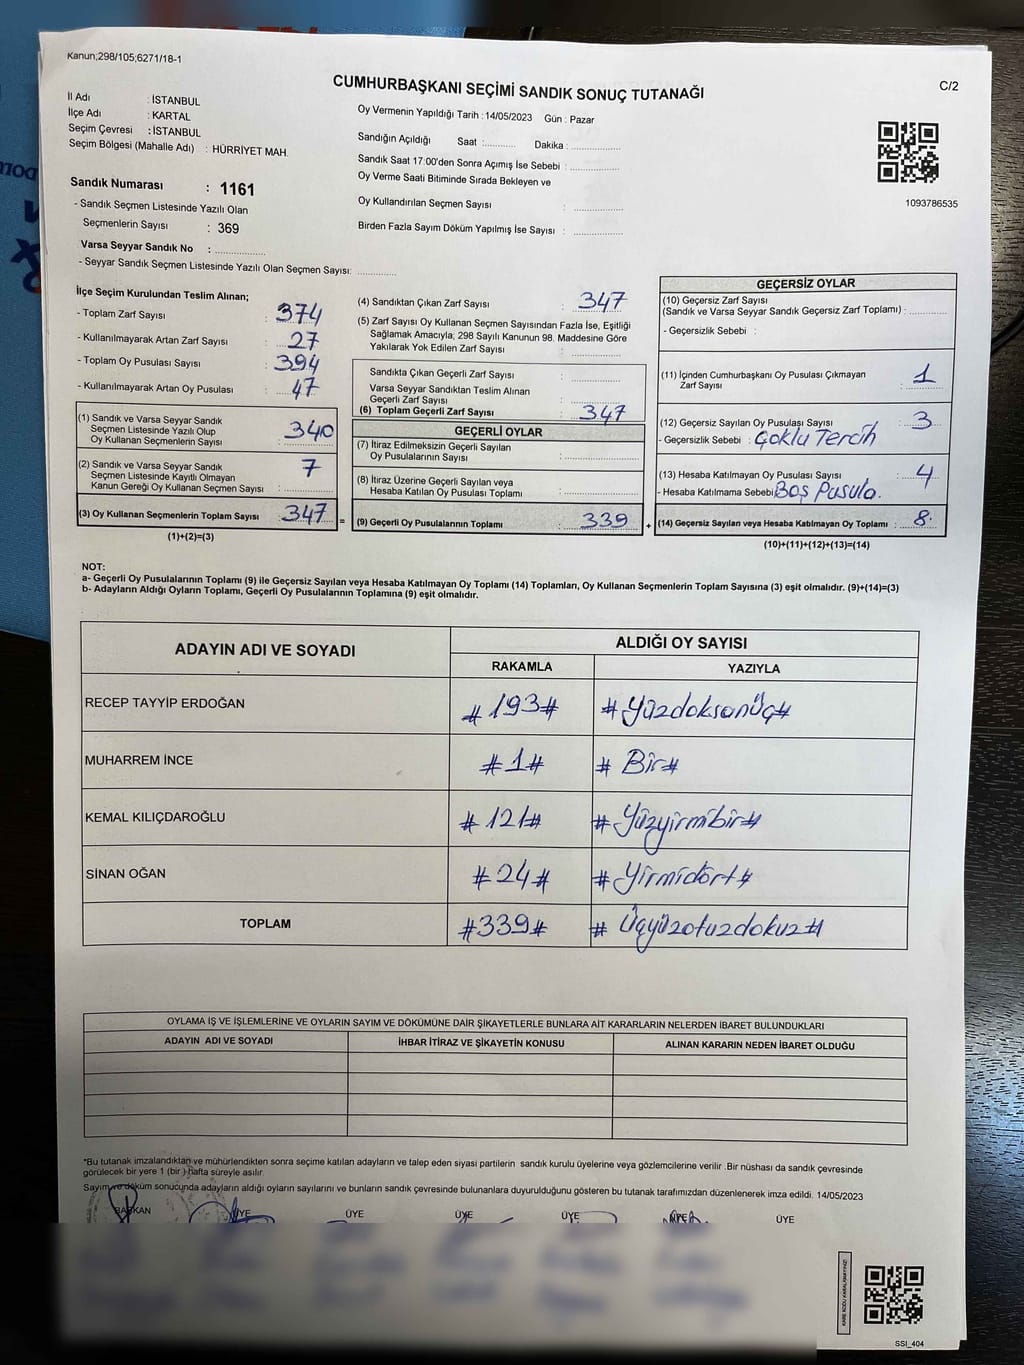 Kanun;298/105;6271/18-1
CUMHURBAŞKANI SEÇİMİ SANDIK SONUÇ TUTANAĞI
C/2
İl Adı : İSTANBUL
İlçe Adı : KARTAL
Seçim Çevresi : İSTANBUL
Seçim Bölgesi (Mahalle Adı) : HÜRRİYET MAH.
Oy Vermenin Yapıldığı Tarih : 14/05/2023 Gün : Pazar
Sandığın Açıldığı Saat :........... Dakika :................
Sandık Saat 17.00'den Sonra Açımış İse Sebebi :................
Oy Verme Saati Bitiminde Sırada Bekleyen ve
Oy Kullandırılan Seçmen Sayısı :................
Birden Fazla Sayım Döküm Yapılmış İse Sayısı :................
1093786535
Sandık Numarası : 1161
- Sandık Seçmen Listesinde Yazılı Olan
Seçmenlerin Sayısı : 369
Varsa Seyyar Sandık No :................
- Seyyar Sandık Seçmen Listesinde Yazılı Olan Seçmen Sayısı: ............
İlçe Seçim Kurulundan Teslim Alınan;
- Toplam Zarf Sayısı : 374
- Kullanılmayarak Artan Zarf Sayısı : 27
- Toplam Oy Pusulası Sayısı : 394
- Kullanılmayarak Artan Oy Pusulası : 47
(1) Sandık ve Varsa Seyyar Sandık
Seçmen Listesinde Yazılı Olup
Oy Kullanan Seçmenlerin Sayısı : 340
(2) Sandık ve Varsa Seyyar Sandık
Seçmen Listesinde Kayıtlı Olmayan
Kanun Gereği Oy Kullanan Seçmen Sayısı : 7
(3) Oy Kullanan Seçmenlerin Toplam Sayısı : 347 =
(1)+(2)=(3)
(4) Sandıktan Çıkan Zarf Sayısı : 347
(5) Zarf Sayısı Oy Kullanan Seçmen Sayısından Fazla İse, Eşitliği
Sağlamak Amacıyla; 298 Sayılı Kanunun 98. Maddesine Göre
Yakılarak Yok Edilen Zarf Sayısı :................
Sandıkta Çıkan Geçerli Zarf Sayısı :................
Varsa Seyyar Sandıktan Teslim Alınan
Geçerli Zarf Sayısı :................
(6) Toplam Geçerli Zarf Sayısı : 347
GEÇERLİ OYLAR
(7) İtiraz Edilmeksizin Geçerli Sayılan
Oy Pusulalarının Sayısı :................
(8) İtiraz Üzerine Geçerli Sayılan veya
Hesaba Katılan Oy Pusulası Toplamı :................
(9) Geçerli Oy Pusulalarının Toplamı : 339 +
GEÇERSİZ OYLAR
(10) Geçersiz Zarf Sayısı
(Sandık ve Varsa Seyyar Sandık Geçersiz Zarf Toplamı) :............
- Geçersizlik Sebebi :
(11) İçinden Cumhurbaşkanı Oy Pusulası Çıkmayan
Zarf Sayısı : 1
(12) Geçersiz Sayılan Oy Pusulası Sayısı : 3
- Geçersizlik Sebebi : Çoklu Tercih
(13) Hesaba Katılmayan Oy Pusulası Sayısı : 4
- Hesaba Katılmama Sebebi: Boş Pusula.
(14) Geçersiz Sayılan veya Hesaba Katılmayan Oy Toplamı : 8.
(10)+(11)+(12)+(13)=(14)
NOT:
a- Geçerli Oy Pusulalarının Toplamı (9) ile Geçersiz Sayılan veya Hesaba Katılmayan Oy Toplamı (14) Toplamları, Oy Kullanan Seçmenlerin Toplam Sayısına (3) eşit olmalıdır. (9)+(14)=(3)
b- Adayların Aldığı Oyların Toplamı, Geçerli Oy Pusulalarının Toplamına (9) eşit olmalıdır.
ADAYIN ADI VE SOYADI
ALDIĞI OY SAYISI
RAKAMLA YAZIYLA
RECEP TAYYİP ERDOĞAN #193# #Yüzdoksanüç#
MUHARREM İNCE #1# # Bir#
KEMAL KILIÇDAROĞLU #121# #Yüzyirmibir#
SİNAN OĞAN #24# #Yirmidört#
TOPLAM #339# # Üçyüzotuzdokuz#
OYLAMA İŞ VE İŞLEMLERİNE VE OYLARIN SAYIM VE DÖKÜMÜNE DAİR ŞİKAYETLERLE BUNLARA AİT KARARLARIN NELERDEN İBARET BULUNDUKLARI
ADAYIN ADI VE SOYADI İHBAR İTİRAZ VE ŞİKAYETİN KONUSU ALINAN KARARIN NEDEN İBARET OLDUĞU
*Bu tutanak imzalandıktan ve mühürlendikten sonra seçime katılan adayların ve talep eden siyasi partilerin sandık kurulu üyelerine veya gözlemcilerine verilir .Bir nüshası da sandık çevresinde
görülecek bir yere 1 (bir ) hafta süreyle asılır.
Sayım ve döküm sonucunda adayların aldığı oyların sayılarını ve bunların sandık çevresinde bulunanlara duyurulduğunu gösteren bu tutanak tarafımızdan düzenlenerek imza edildi. 14/05/2023
BAŞKAN ÜYE ÜYE ÜYE ÜYE ÜYE ÜYE
SSI_404